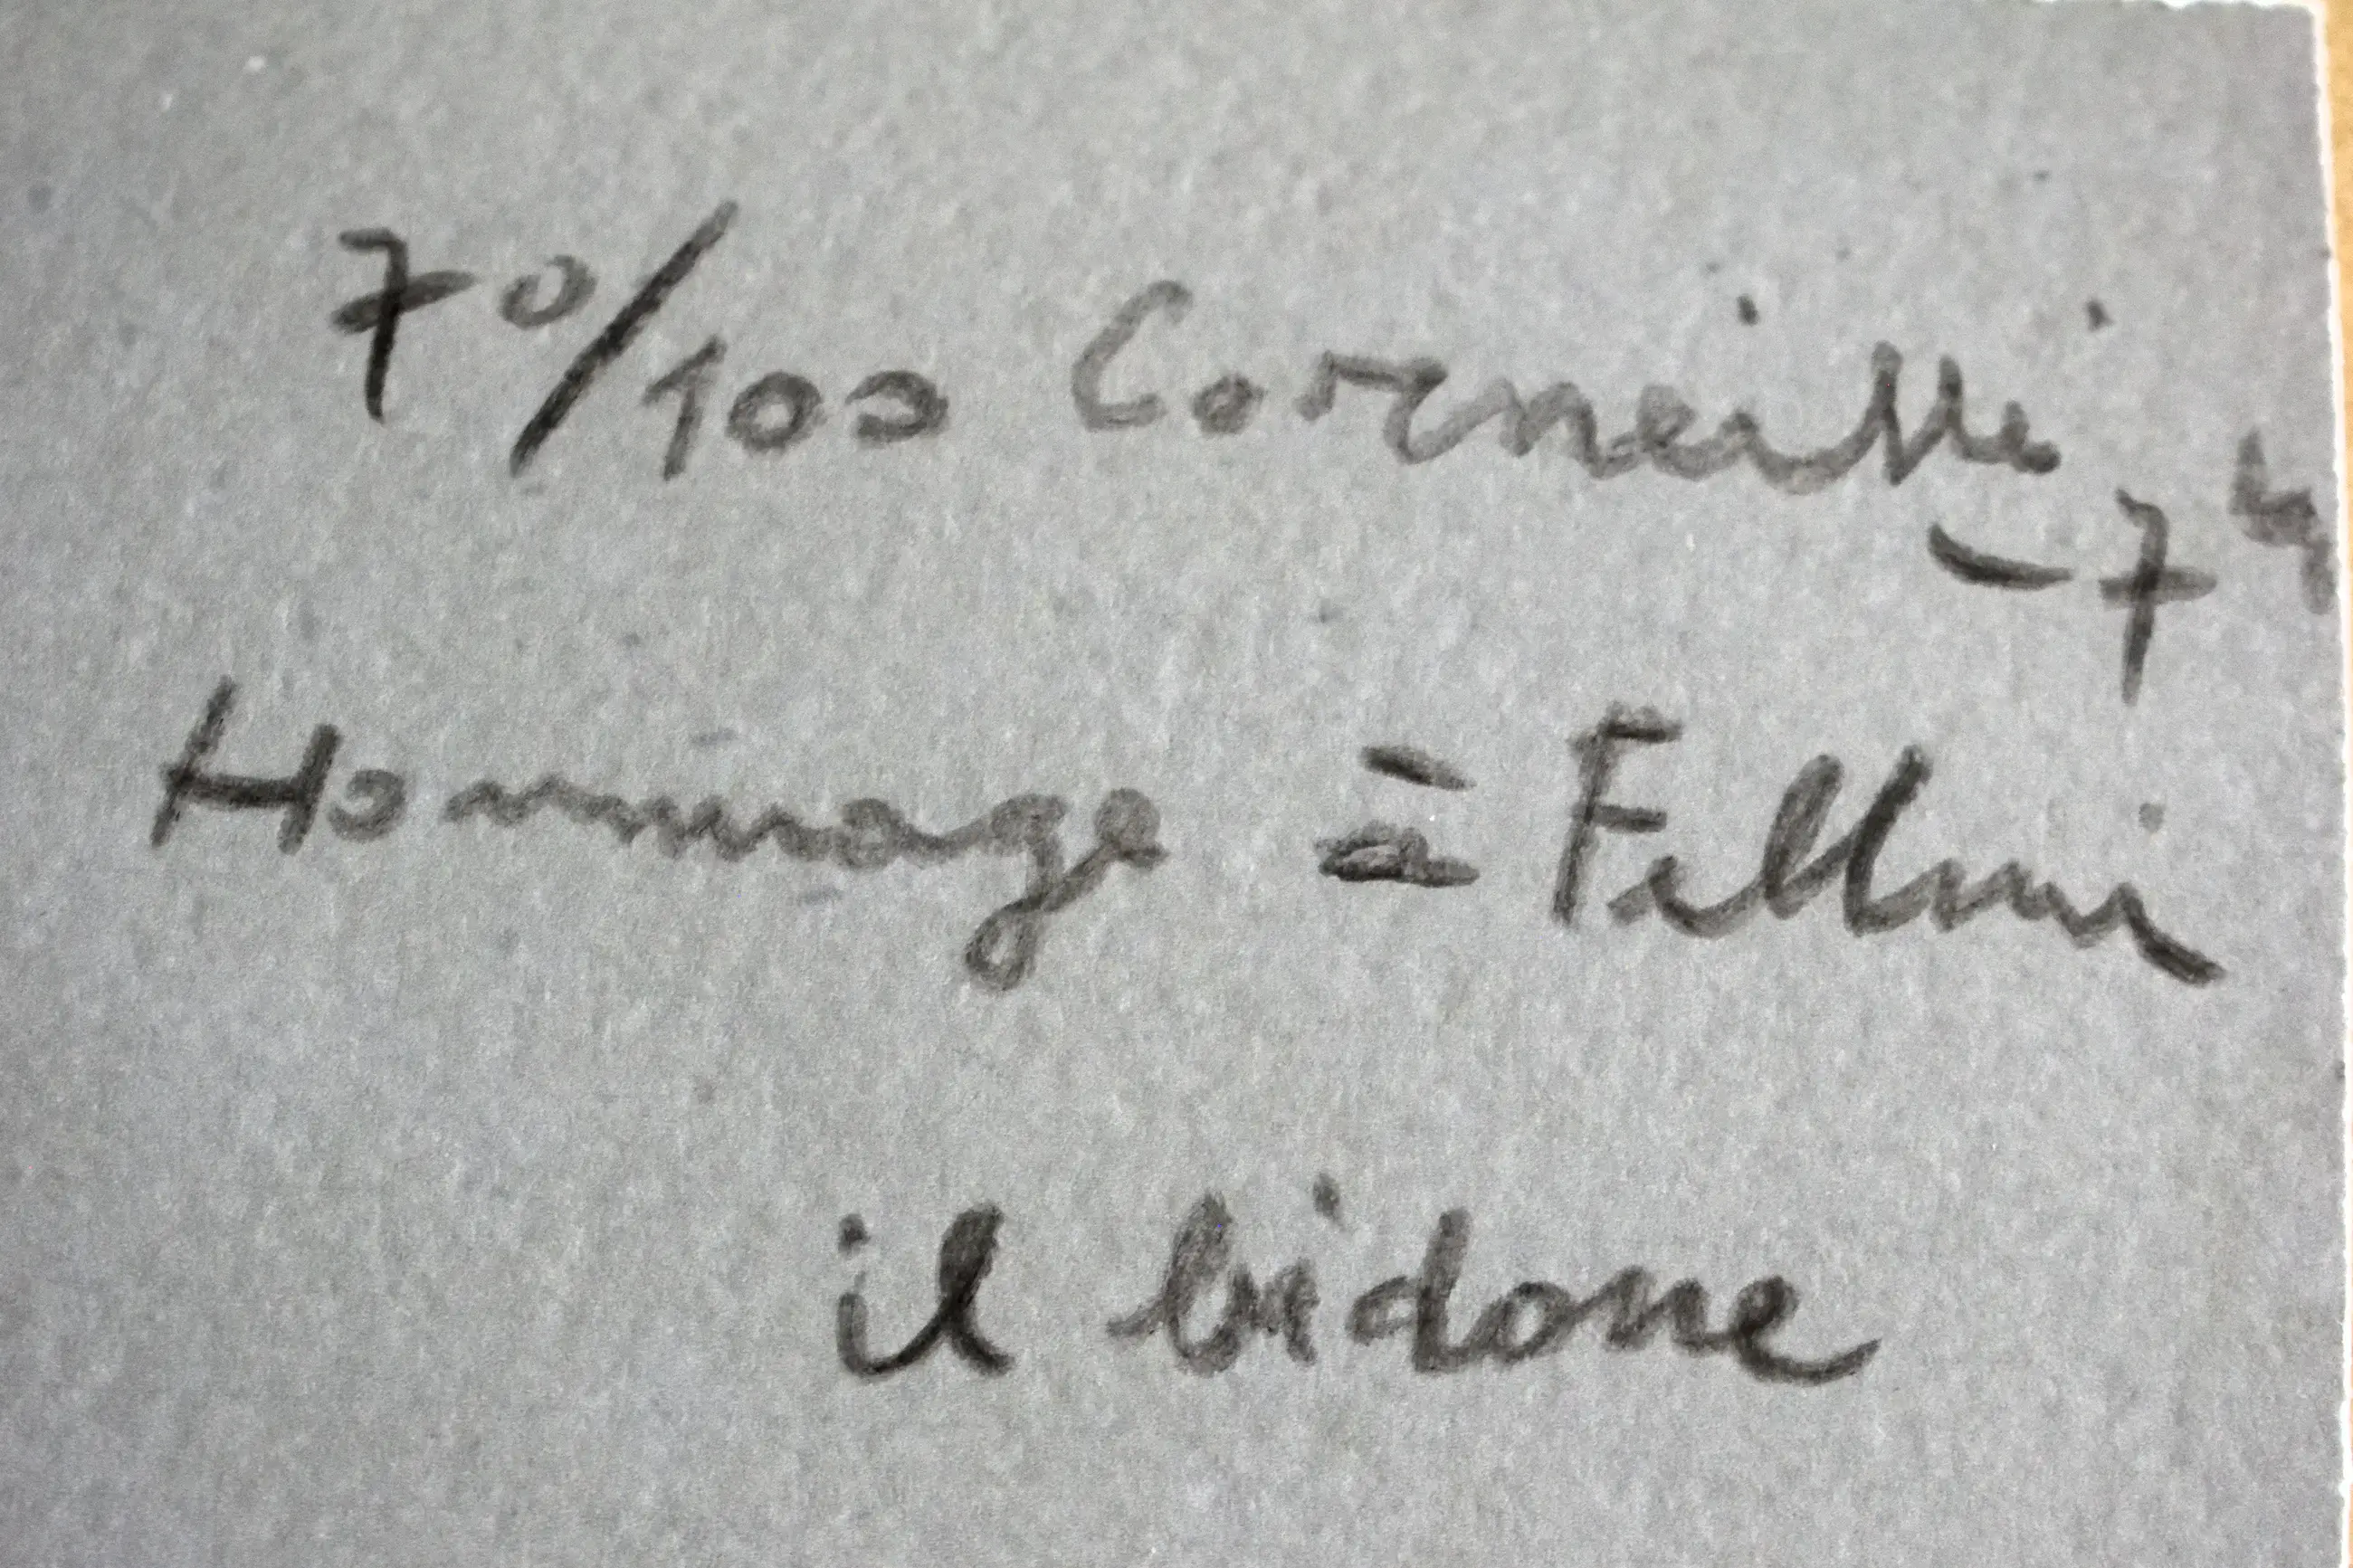 70/100 Corneille -74
Hommage à Fellini
il bidone